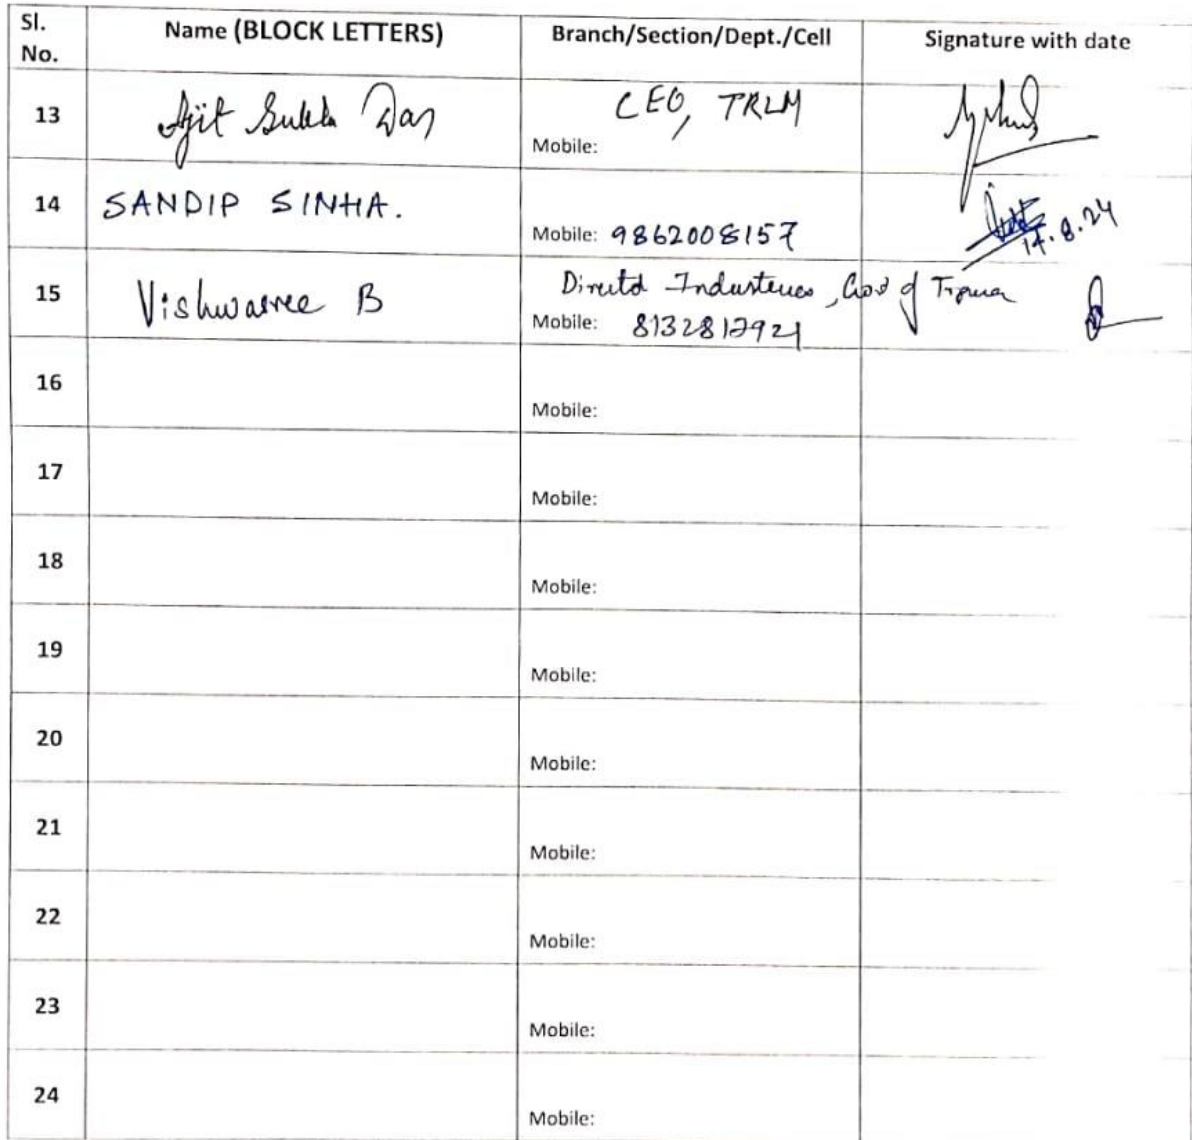 Sl. No. Name (BLOCK LETTERS) Branch/Section/Dept./Cell Signature with date
13 Ajit Sukla Das CEO, TRLM
Mobile:
14 SANDIP SINHA.
Mobile: 9862008157
.8.24
15 Vishwasree B Director Industries, Gov of Tripura
Mobile: 8132812921
16
Mobile:
17
Mobile:
18
Mobile:
19
Mobile:
20
Mobile:
21
Mobile:
22
Mobile:
23
Mobile:
24
Mobile: